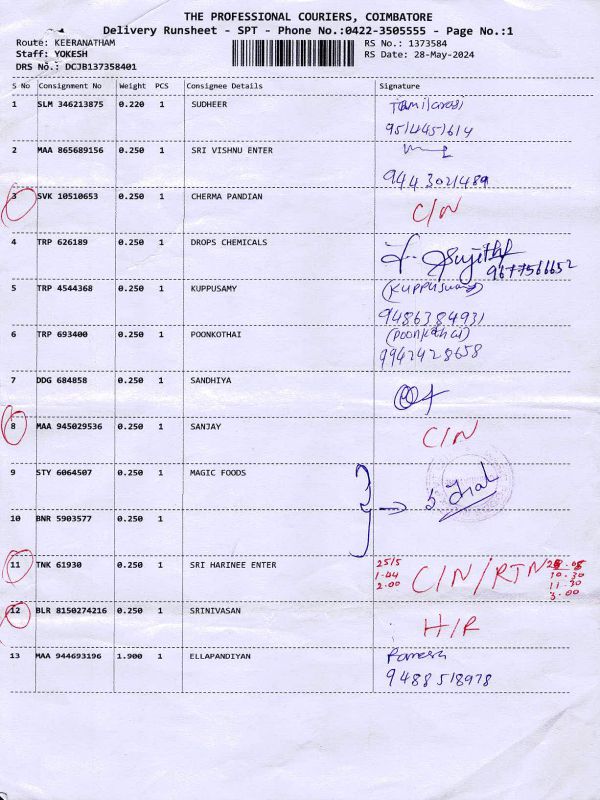 THE PROFESSIONAL COURIERS, COIMBATORE
Delivery Runsheet - SPT - Phone No.:0422-3505555 - Page No.:1
Route: KEERANATHAM RS No.: 1373584
Staff: YOKESH RS Date: 28-May-2024
DRS No.: DCJB137358401
S No Consignment No Weight PCS Consignee Details Signature
1 SLM 346213875 0.220 1 SUDHEER
9514451614
2 MAA 865689156 0.250 1 SRI VISHNU ENTER
9443021489
3 SVK 10510653 0.250 1 CHERMA PANDIAN C/N
4 TRP 626189 0.250 1 DROPS CHEMICALS
9677566652
5 TRP 4544368 0.250 1 KUPPUSAMY (Kuppuswamy)
9486384931
6 TRP 693400 0.250 1 POONKOTHAI (Poonkothai)
9942428658
7 DDG 684858 0.250 1 SANDHIYA
8 MAA 945029536 0.250 1 SANJAY C/N
9 STY 6064507 0.250 1 MAGIC FOODS
10 BNR 5903577 0.250 1
11 TNK 61930 0.250 1 SRI HARINEE ENTER 25/5 1-44 2.00 C/N/RTN 10.30 11.30 3.00
12 BLR 8150274216 0.250 1 SRINIVASAN H/R
13 MAA 944693196 1.900 1 ELLAPANDIYAN Ramesh
9488518978